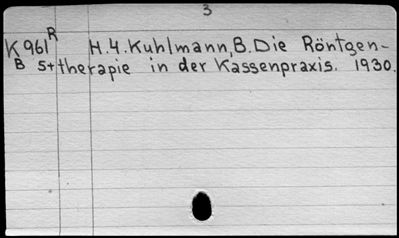 3
K961R H.4.Kuhlmann,B.Die Röntgen-
B St+therapie in der Kassenpraxis. 1930.